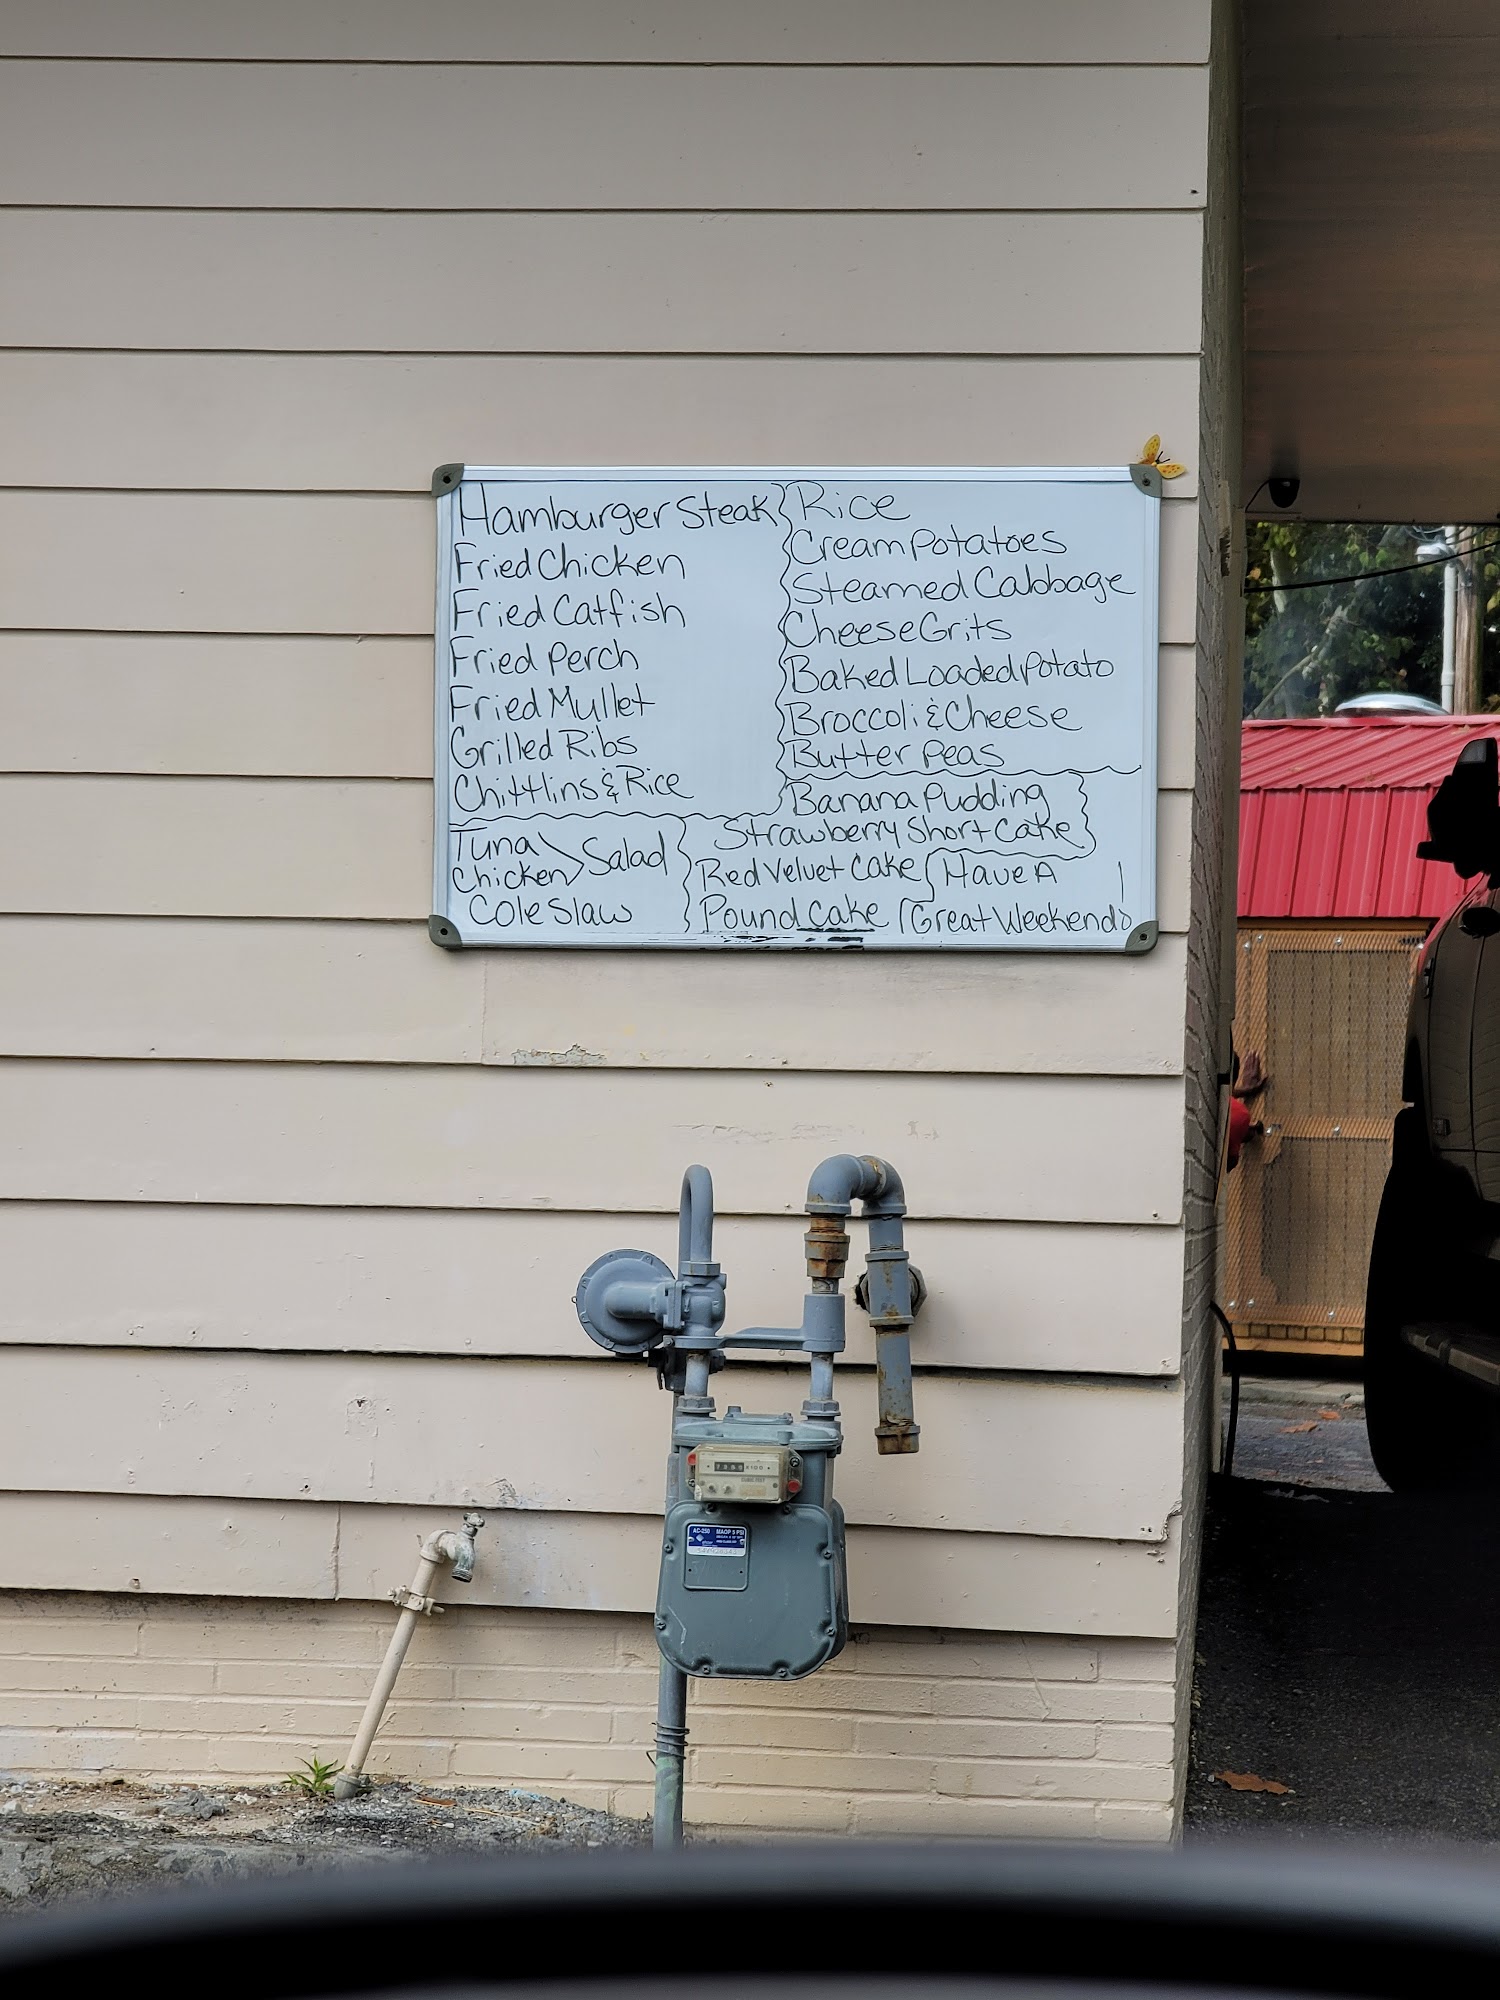 Hamburger Steak
Fried Chicken
Fried Catfish
Fried Perch
Fried Mullet
Grilled Ribs
Chittlins & Rice
Tuna
Chicken
Salad
Cole Slaw
Rice
Cream Potatoes
Steamed Cabbage
Cheese Grits
Baked Loaded Potato
Broccoli & Cheese
Butter Peas
Banana Pudding
Strawberry Short Cake
Red Velvet Cake
Pound Cake
Have A
Great Weekend!
AC-250 MAOP 5 PSI